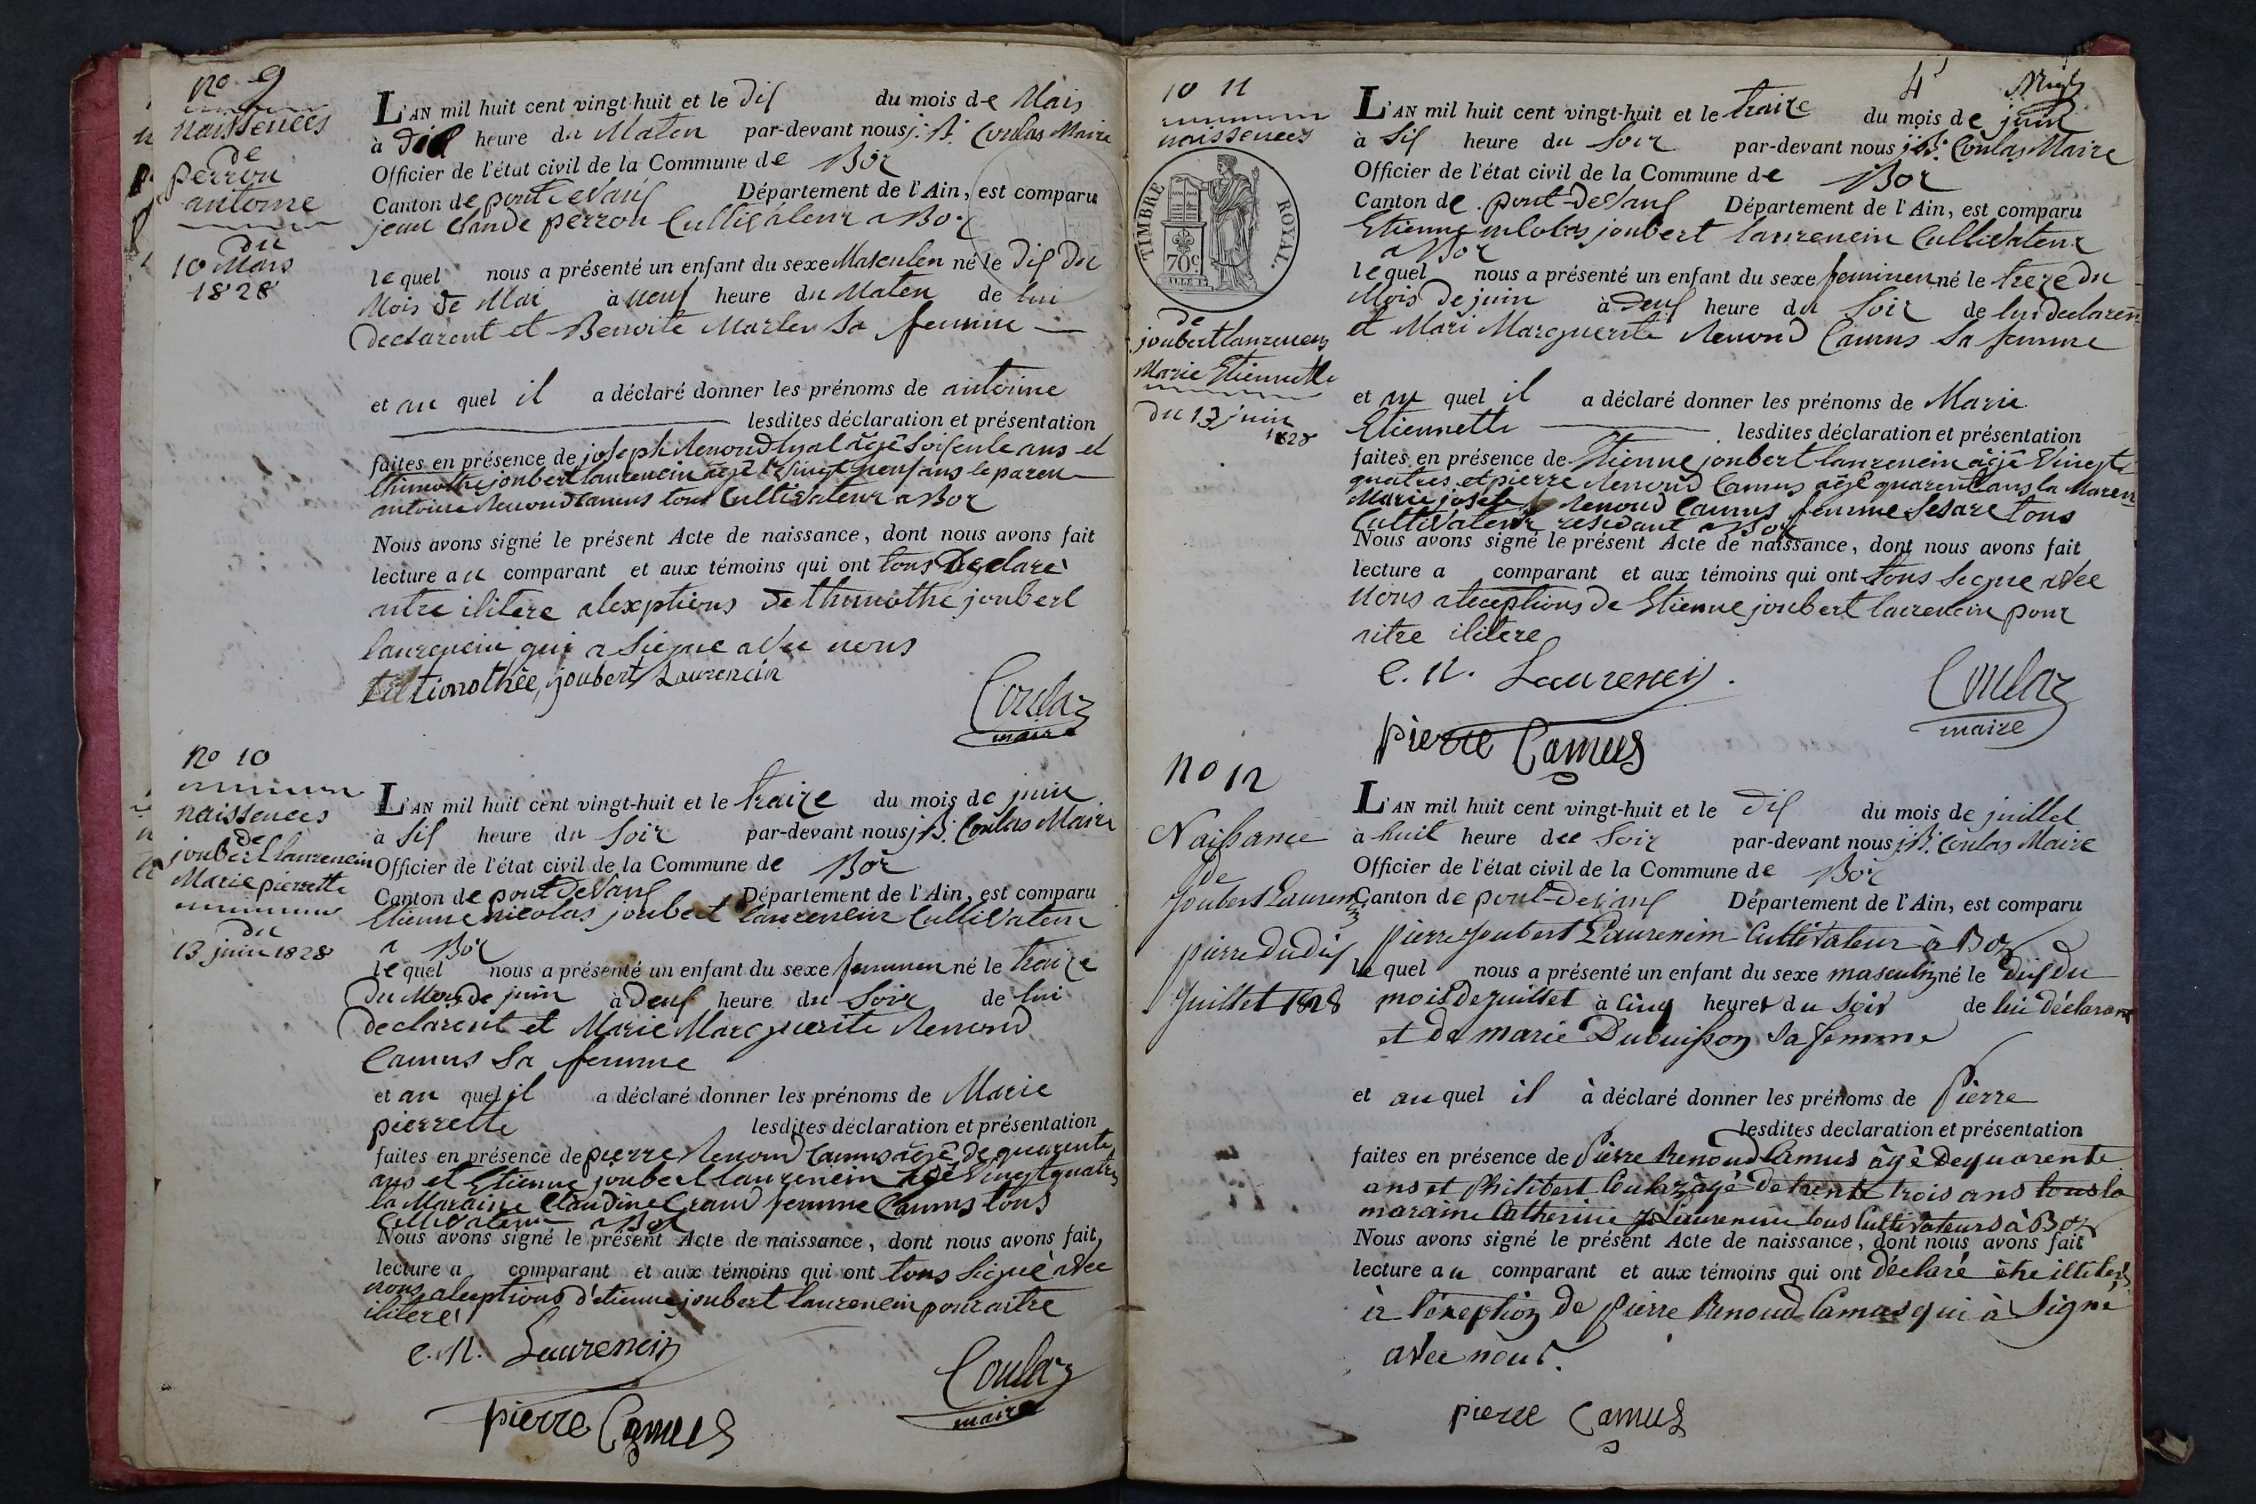 No 9
naissences
de
perron
antoine
du
10 Mars
1828
L'AN mil huit cent vingt-huit et le dis du mois de Mais
à dix heure du Maten par-devant nous j. B. Coulas Maire
Officier de l'état civil de la Commune de Boz
Canton de pont de vaus Département de l'Ain, est comparu
jean Claude perron Cultivateur a Boz
lequel nous a présenté un enfant du sexe Masculen né le dis du
Mois de Mai à neuf heure du Maten de lui
declarent et Benoite Marlen sa femme
et au quel il a déclaré donner les prénoms de antoine
lesdites déclaration et présentation
faites en présence de joseph Renoud agé soisente ans et
thimothé joubert laurencin agé vingt neuf ans le paren
antoine Renoud Camus tous Cultivateur a Boz
Nous avons signé le présent Acte de naissance, dont nous avons fait
lecture au comparant et aux témoins qui ont tous déclaré
aitre ilitere alexptions de thimothé joubert
laurencin qui a signe avec nous
timothée, joubert Laurencin
Coulaz
maire
No 10
naissences
de
joubert laurencin
Marie pierrette
du
13 juin 1828
L'AN mil huit cent vingt-huit et le traize du mois de juin
à sis heure du soir par-devant nous j. B. Coulas Maire
Officier de l'état civil de la Commune de Boz
Canton de pont de Vaus Département de l'Ain, est comparu
Etienne nicolas joubert laurencin Cultivateur
a Boz
lequel nous a présenté un enfant du sexe femmen né le traize
du Mois de juin à deus heure du soir de lui
declarent et Marie Marguerite Renoud
Camus sa femme
et au quel il a déclaré donner les prénoms de Marie
pierrette lesdites déclaration et présentation
faites en présence de pierre Renoud Camus agé de quarente
ans et Etienne joubert laurencin agé vingt quatre
la Maraine Claudine Grand femme Camus tous
Cultivateur a Boz
Nous avons signé le présent Acte de naissance, dont nous avons fait
lecture a comparant et aux témoins qui ont tous signé avec
nous aleeptions d'etienne joubert laurencin pour aitre
ilitere
e. N. Laurencin
Coulaz
maire
pierre Camus
4
no 11
naissences
TIMBRE ROYAL.
70c
de
joubert laurencin
Marie Etiennette
du 13 juin
1828
L'AN mil huit cent vingt-huit et le traize du mois de juin
à sis heure du soir par-devant nous j. B. Coulas Maire
Officier de l'état civil de la Commune de Boz
Canton de pont-de Vaus Département de l'Ain, est comparu
Etienne nicolas joubert laurencin Cultivateur
a Boz
lequel nous a présenté un enfant du sexe feminen né le treze du
Mois de juin à deus heure du soir de lui declaren
et Mari Marguerite Renoud Camus sa femme
et au quel il a déclaré donner les prénoms de Marie
Etiennette lesdites déclaration et présentation
faites en présence de Etienne joubert laurencin agé vingt
quatres et pierre Renoud Camus agé quarent ans la Maren
Marie Renoud Camus femme tous
Cultivateur residant a Boz
Nous avons signé le présent Acte de naissance, dont nous avons fait
lecture a comparant et aux témoins qui ont tous segne avec
nous aleceptions de Etienne joubert laurencin pour
aitre ilitere
e. N. Laurencin.
Coulaz
maire
pierre Camus
no 12
Naissance
de
Joubert Laurencin
pierre du dix
Juillet 1828
L'AN mil huit cent vingt-huit et le dis du mois de juillet
à huit heure du soir par-devant nous j. B. Coulas Maire
Officier de l'état civil de la Commune de Boz
Canton de pont-de vaus Département de l'Ain, est comparu
pierre Joubert Laurencin Cultivateur à Boz
lequel nous a présenté un enfant du sexe masculin né le dix du
mois de juillet à cinq heures du soir de lui déclarant
et de marie Dubuisson sa femme
et au quel il à déclaré donner les prénoms de Pierre
lesdites declaration et présentation
faites en présence de Pierre Renoud Camus âgé de quarente
ans et Philibert Coulaz âgé de trente trois ans tous la
maraine Catherine J. Laurencin tous Cultivateurs à Boz
Nous avons signé le présent Acte de naissance, dont nous avons fait
lecture au comparant et aux témoins qui ont déclaré être illiterés
à l'exeption de Pierre Renoud Camus qui à signé
avec nous.
pierre Camus